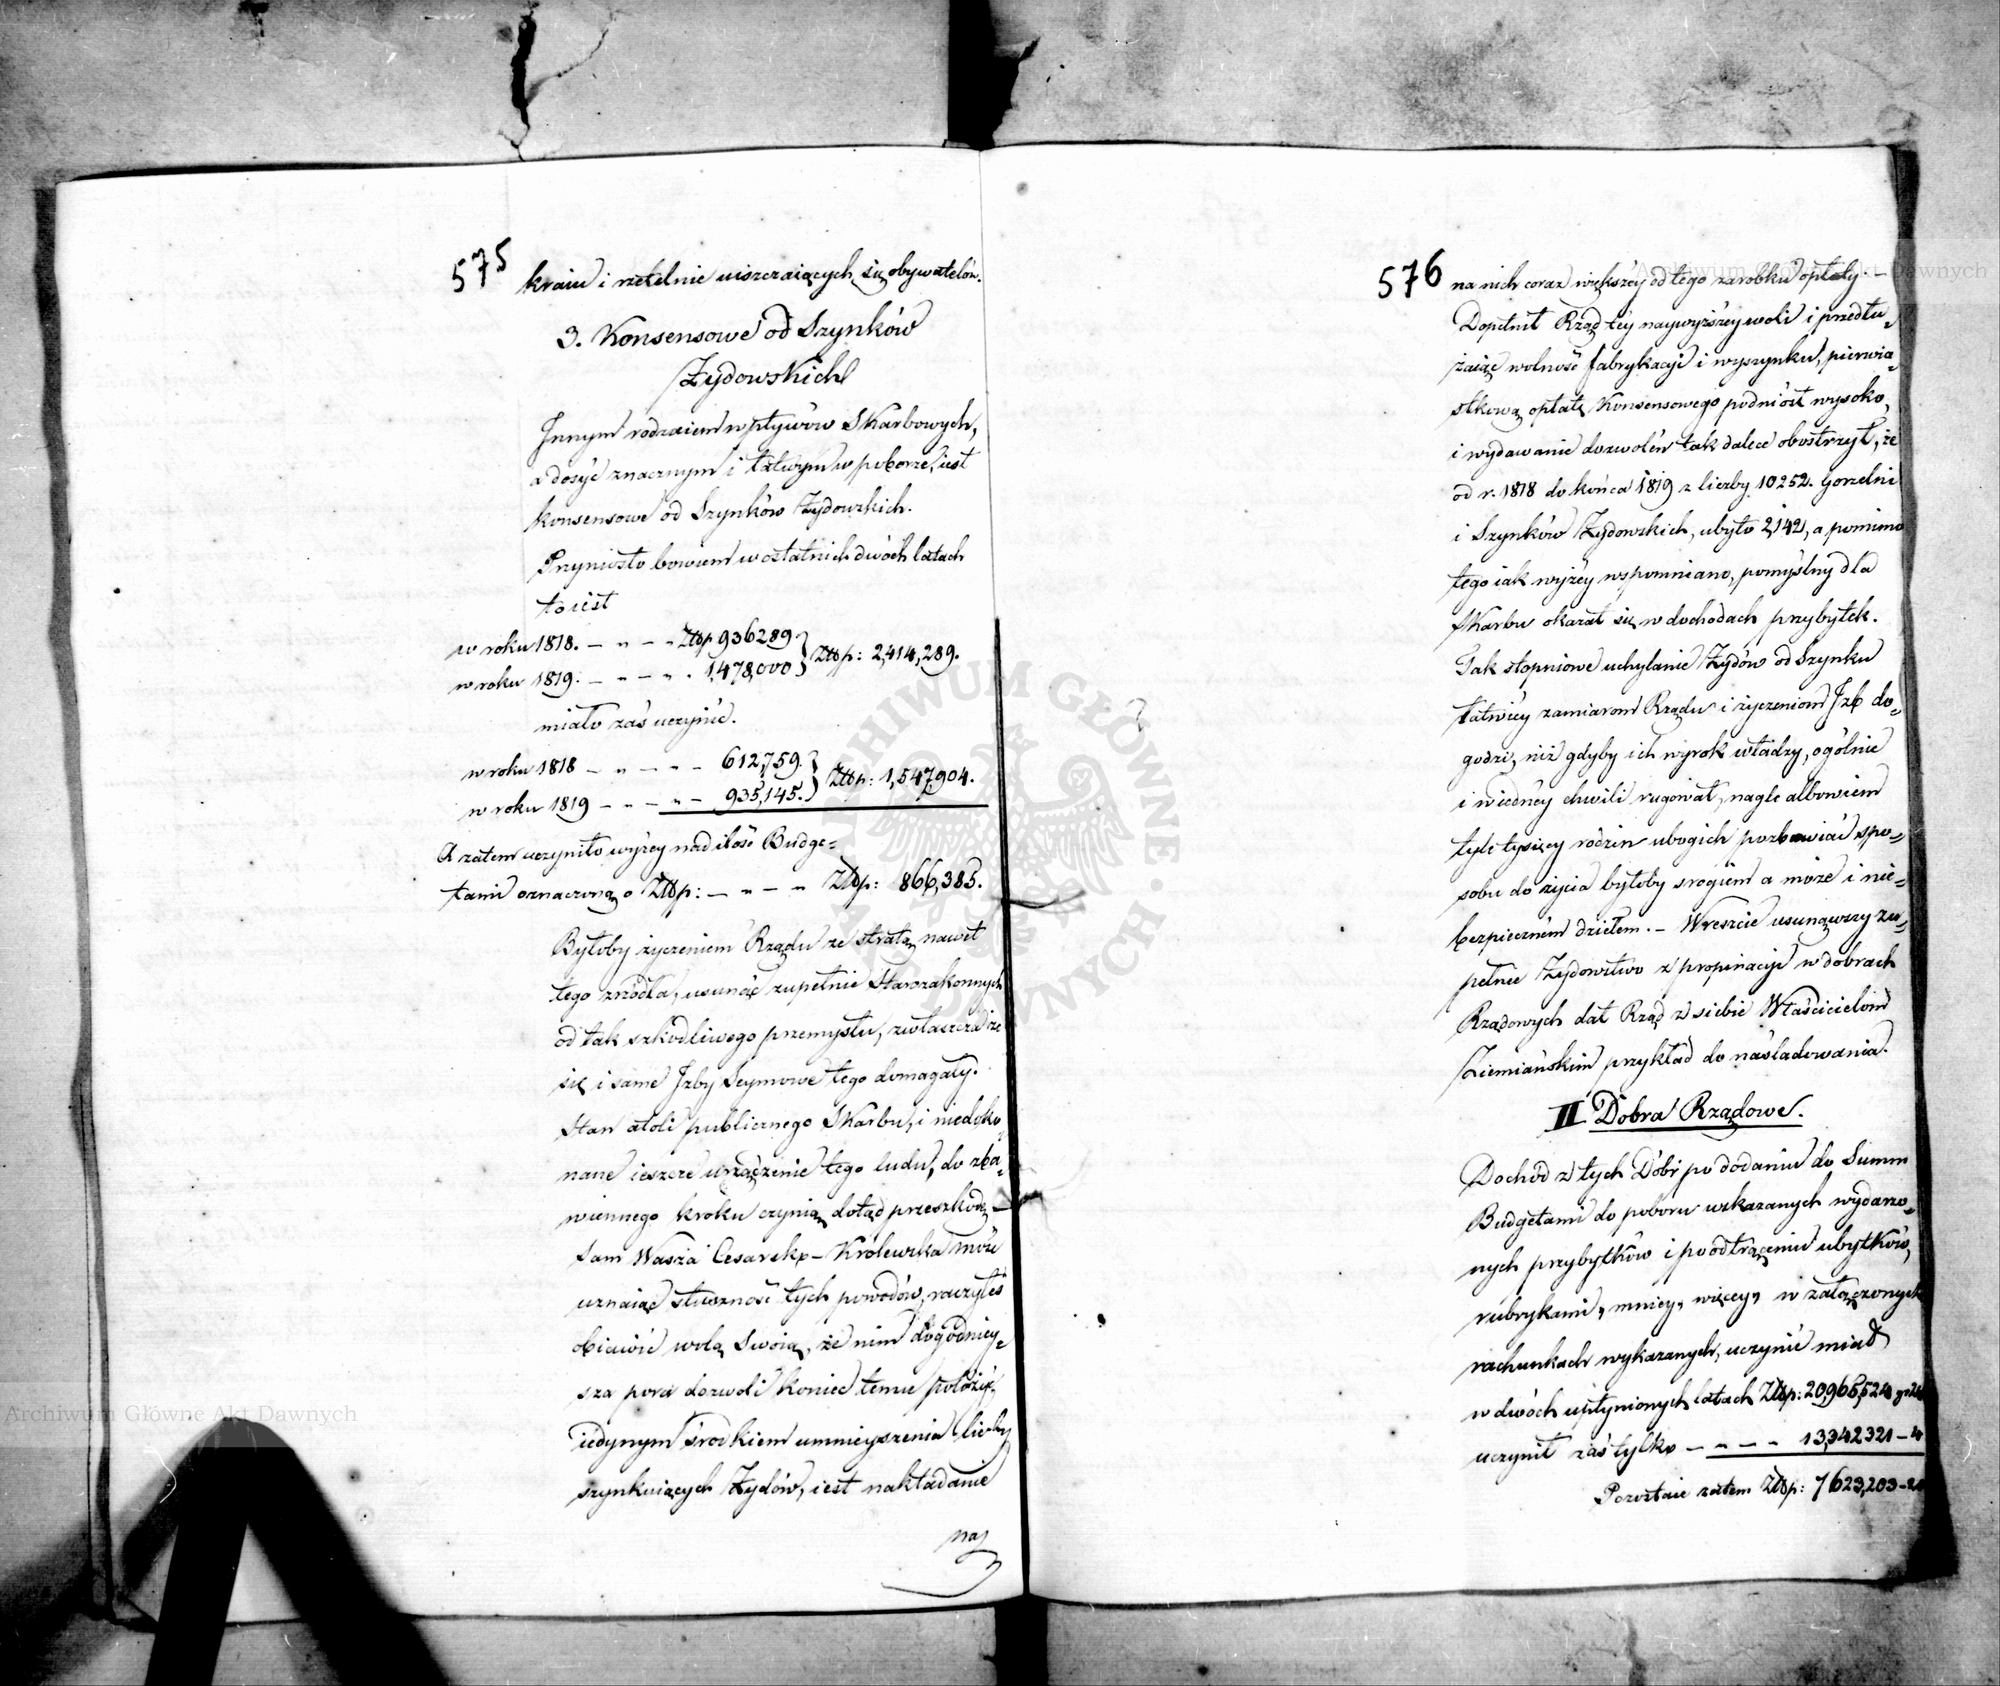 575
kraiu i rzetelnie uiszczaiących się obywatelów.
3. Konsensowe od Szynków
Żydowskich
Innym rodzaiem wpływów Skarbowych,
a dosyć znacznym i łatwym w poborze, iest
konsensowe od Szynków Żydowskich.
Przyniosło bowiem w ostatnich dwóch latach
to iest
w roku 1818. — „ — „ Złłp 936289
w roku 1819. — „ — „ 1,478,000 } Złłp: 2,414,289.
miało zaś uczynić.
w roku 1818 — „ — „ — 612,759.
w roku 1819 — „ — „ — 935,145. } Złłp: 1,547,904.
A zatem uczyniło wyżey nad ilość Budge=
tami oznaczoną o Złłp: — „ — „ Złłp: 866,385.
Byłoby życzeniem Rządu ze stratą nawet
tego źródła, usunąć zupełnie Starozakonnych
od tak szkodliwego przemysłu, zwłaszcza że
się i same Izby Seymowe tego domagały.
Stan atoli publicznego Skarbu, i niedoko=
nane ieszcze urządzenie tego ludu, do zba=
wiennego kroku czynią dotąd przeszkodę —
Sam Wasza Cesarsko-Królewska mość
uznaiąc słuszność tych powodów, raczyłeś
obiawić wolą Swoią, że nim dogodniey=
sza pora dozwoli koniec temu położyć,
iedynym środkiem umnieyszenia liczby
szynkuiących Żydów, iest nakładanie
na
576
na nich coraz większey od tego zarobku opłaty. —
Dopełnił Rząd tey naywyższey woli i przedłu=
żaiąc wolność fabrykacyi i wyszynku, pierwia=
stkową opłatę Konsensowego podniósł wysoko,
i wydawanie dozwoleń tak dalece obostrzył, że
od r. 1818 do końca 1819 z liczby 10252. Gorzelni
i Szynków Żydowskich, ubyło 2,142, a pomimo
tego iak wyżey wspomniano, pomyślny dla
Skarbu okazał się w dochodach przybytek.
Tak stopniowe uchylanie Żydów od Szynku
łatwiey zamiarom Rządu i życzeniom Izb do=
godzi, niż gdyby ich wyrok władzy, ogólnie
i w iedney chwili rugował, nagle albowiem
tyle tysięcy rodzin ubogich pozbawiać spo=
sobu do życia byłoby srogiem a może i nie=
bezpiecznem dziełem. — Wreszcie usunąwszy zu=
pełnie Żydowstwo z propinacyi w dobrach
Rządowych dał Rząd z siebie Właścicielom
Ziemiańskim przykład do naśladowania.
II Dobra Rządowe.
Dochód z tych Dóbr po dodaniu do Summ
Budgetami do poboru wskazanych wydarzo=
nych przybytków i po odtrąceniu ubytków,
rubrykami „mniey„ więcey„ w załączonych
rachunkach wykazanych, uczynić miał
w dwóch upłynionych latach Złłp: 20,965,524
uczynił zaś tylko — „ — „ 13,342321 – 4
Pozostaie zatem Złłp: 7623,203
Archiwum Główne Akt Dawnych
Archiwum Główne Akt Dawnych
ARCHIWUM GŁÓWNE AKT DAWNYCH